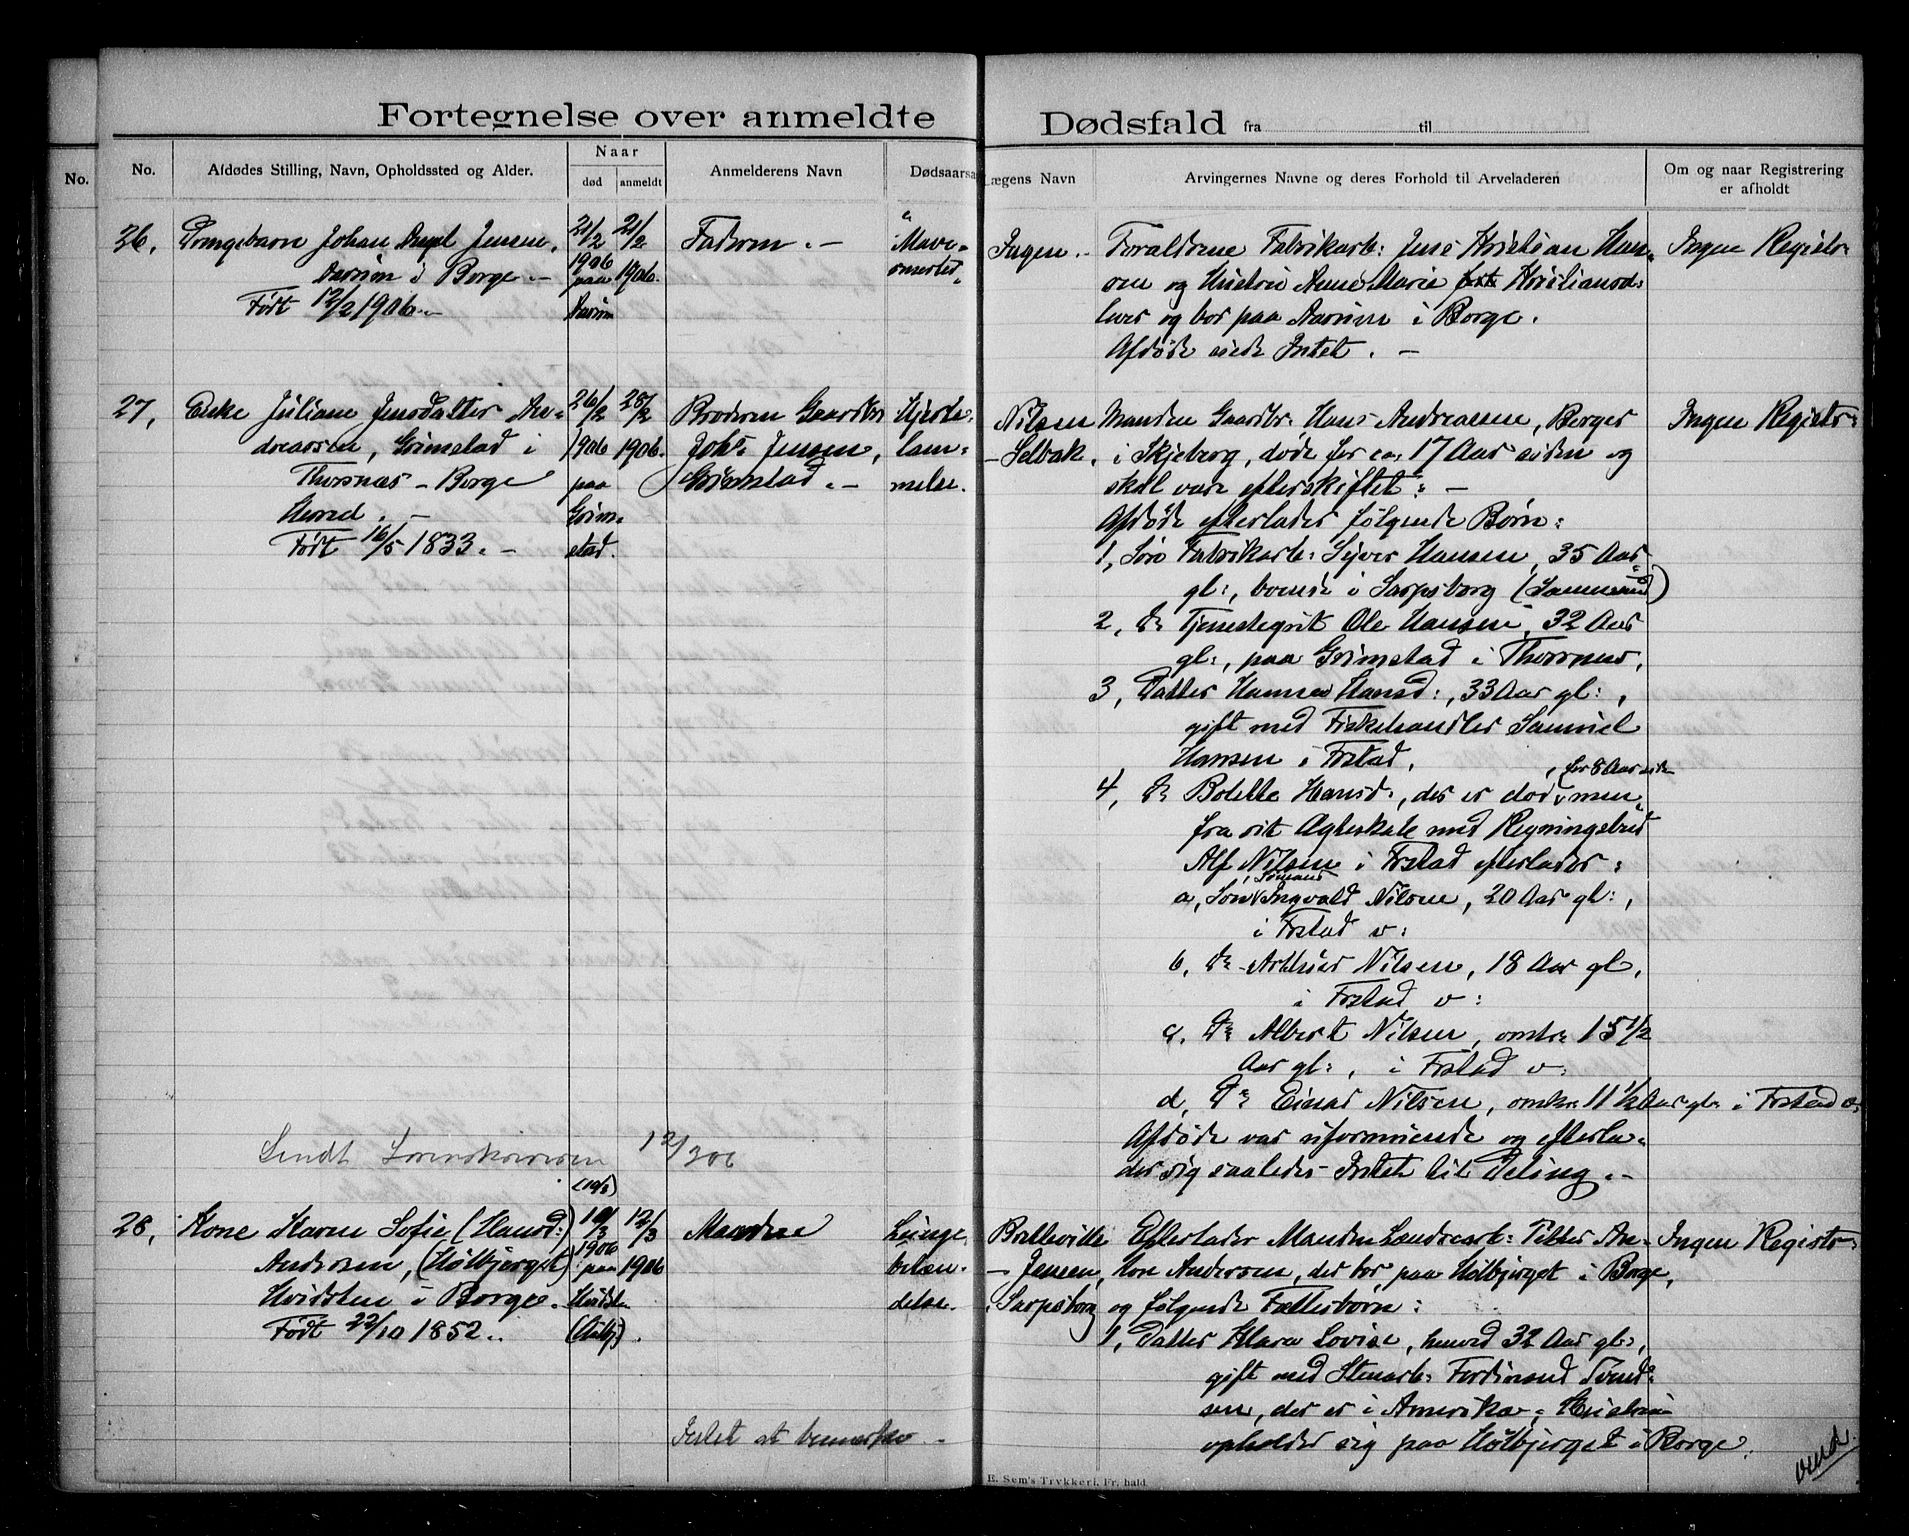 Fortegnelse over anmeldte Dødsfald fra til
No.
No.
Afdødes Stilling, Navn, Opholdssted og Alder.
Naar
død
anmeldt
Anmelderens Navn
Dødsaarsa
Lægens Navn
Arvingernes Navne og deres Forhold til Arveladeren
Om og naar Registrering
er afholdt
26,
Drengebarn Johan Jensen,
Aarum i Borge. –
Født 12/2 1906. –
21/2
1906
paa
Aarum
21/2
1906.
Faderen. –
Mave-
Ingen. –
Forældrene Fabrikarb: Jens Kristian Han-
sen og Hustru Anne Marie Kristiansd:
lever og bor paa Aarum i Borge.
Afdøde eiede Intet. –
Ingen Registr:
27,
Enke Juliane Jensdatter An-
dreassen, Grimstad i
Thorsnæs – Borge
Herred. –
Født 16/5 1833. –
26/2
1906
paa
Grim-
stad.
28/2
1906.
Broderen Gaardbr
Johs Jensen,
Grimstad. –
Hjerte-
lam-
melse.
Nilsen
– Selbak.
Manden Gaardbr. Hans Andreassen, Berger
i Skjeberg, døde for ca. 17 Aar siden og
skal være efterskiftet: –
Afdøde efterlader følgende Børn:
1, Søn Fabrikarb: Syver Hansen, 35 Aar
gl:, boende i Sarpsborg (Sannesund)
2, Do Tjenestegut Ole Hansen, 32 Aar
gl:, paa Grimstad i Thorsnæs,
3, Datter Hansd:, 33 Aar gl:,
gift med Fiskehandler Samuel
Hansen i Frstad,
, for 8 Aar siden
4, Do Bolette Hansd:, der er død, men
fra sit Ægteskab med Regningsbud
Alf Nilsen i Frstad efterlader:
, Sømand
a, Søn Ingvald Nilsen, 20 Aar gl:,
i Frstad v:
b, Do Arthur Nilsen, 18 Aar gl,
i Frstad v:
c, Do Albert Nilsen, omtr: 15 1/2
Aar gl:, i Frstad v:
d, Do Einar Nilsen, omtr. 11 1/2 Aar gl: i Frstad v:
Afdøde var uformuende og efterla-
der sig saaledes Intet til Deling. –
Ingen Registr:
Sendt Sorenskriveren 12/3 06
28,
Kone Karen Sofie (Hansd:)
Andersen, (Hølbjerget)
Hvidsten i Borge.
Født 22/10 1852. –
(10/3)
10/3
1906
paa
Hvidsten
12/3
1906
Manden
Lunge-
betæn-
delse.
– Jensen,
i Sarpsborg
Efterlader Manden Landearb: Petter An-
ton Andersen, der bor paa Hølbjerget i Borge,
og følgende Fællesbørn:
1, Datter Klara Lovise, henved 32 Aar gl:,
gift med Stenarb: Ferdinand Svend-
sen, der er i Amerika. Hustruen
opholder sig paa Hølbjerget i Borge.
Ingen Registr:
Intet at bemerke –
vend.
E. Sem's Trykkeri, Fr.hald.